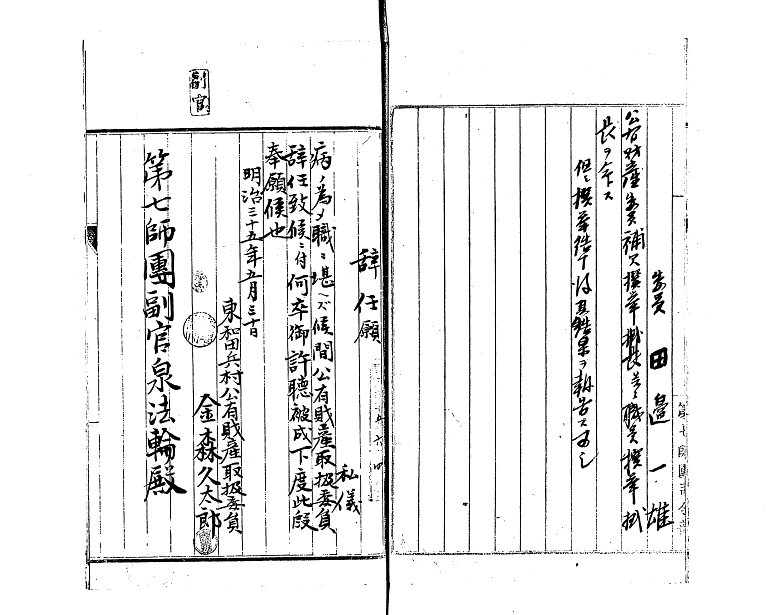 委員 田邉一雄
公有財産委員補欠選挙執長並ニ職員選挙執
長ヲ命ス
但選挙結了後其結果ヲ報告スヘシ
辞任願
私儀
病ノ為メ職ニ堪ヘズ候間公有財産取扱委員
辞任致候ニ付何卒御許聴被成下度此段
奉願候也
明治三十五年五月三十日
東和田兵村公有財産取扱委員
金森久太郎
第七師團副官泉法輪殿
副官